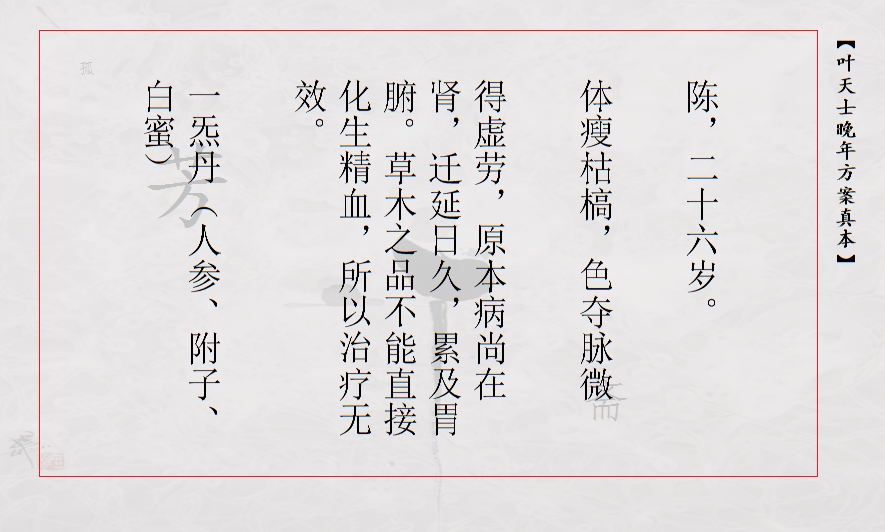 【叶天士晚年方案真本】
陈，二十六岁。
体瘦枯槁，色夺脉微
得虚劳，原本病尚在
肾，迁延日久，累及胃
腑。草木之品不能直接
化生精血，所以治疗无
效。
一炁丹（人参、附子、
白蜜）
芳
斋
孤